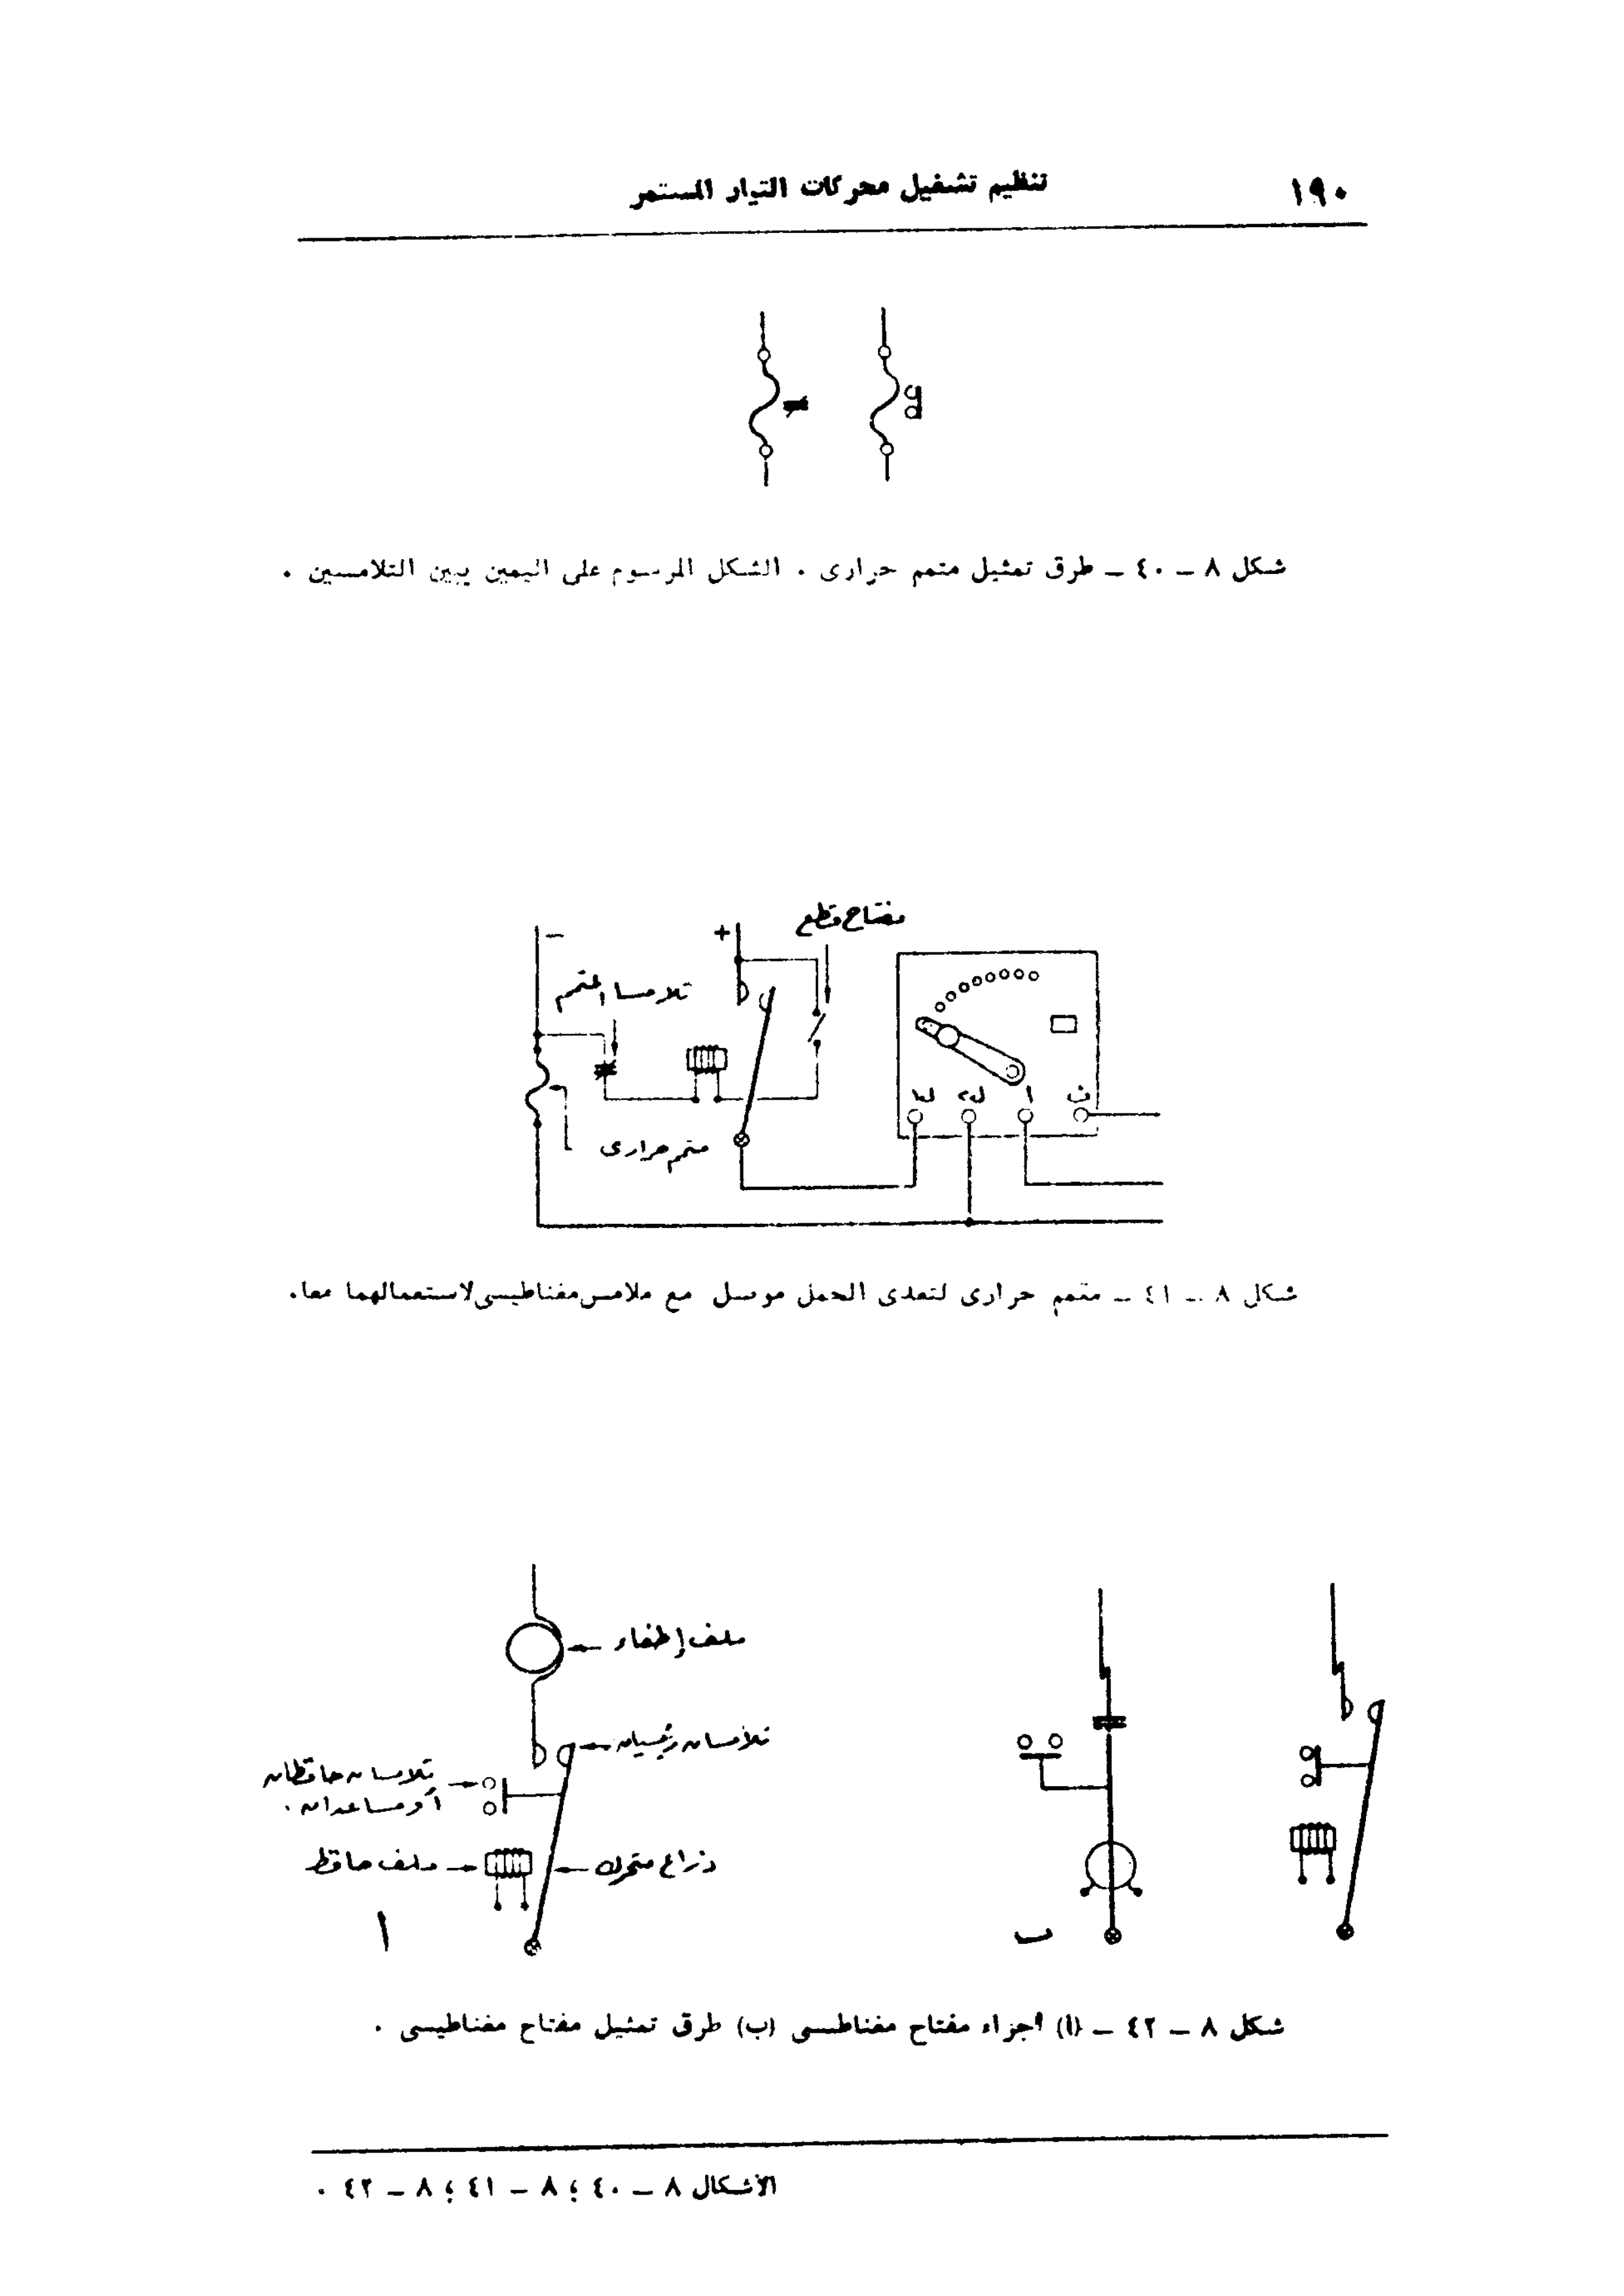 ١٩٠
تنظيم تشغيل محركات التيار المستمر
شكل ٨ – ٤٠ – طرق تمثيل متمم حرارى . الشكل المرسوم على اليمين يبين التلامسين .
مفتاح قطع
+
–
تلامسا المتمم
ل١ ل٢ أ ث
متمم حرارى
شكل ٨ – ٤١ – متمم حرارى لتعدى الحمل موصل مع ملامس مغناطيسى لاستعمالهما معا.
ملف إطفاء
تلامسان رئيسيان
تلامسان حافظان
أو مساعدان .
ملف حافظ
ذراع متحرك
ا
ب
شكل ٨ – ٤٢ – (ا) أجزاء مفتاح مغناطيسى (ب) طرق تمثيل مفتاح مغناطيسى .
الأشكال ٨ – ٤٠ ؛ ٨ – ٤١ ؛ ٨ – ٤٢ .